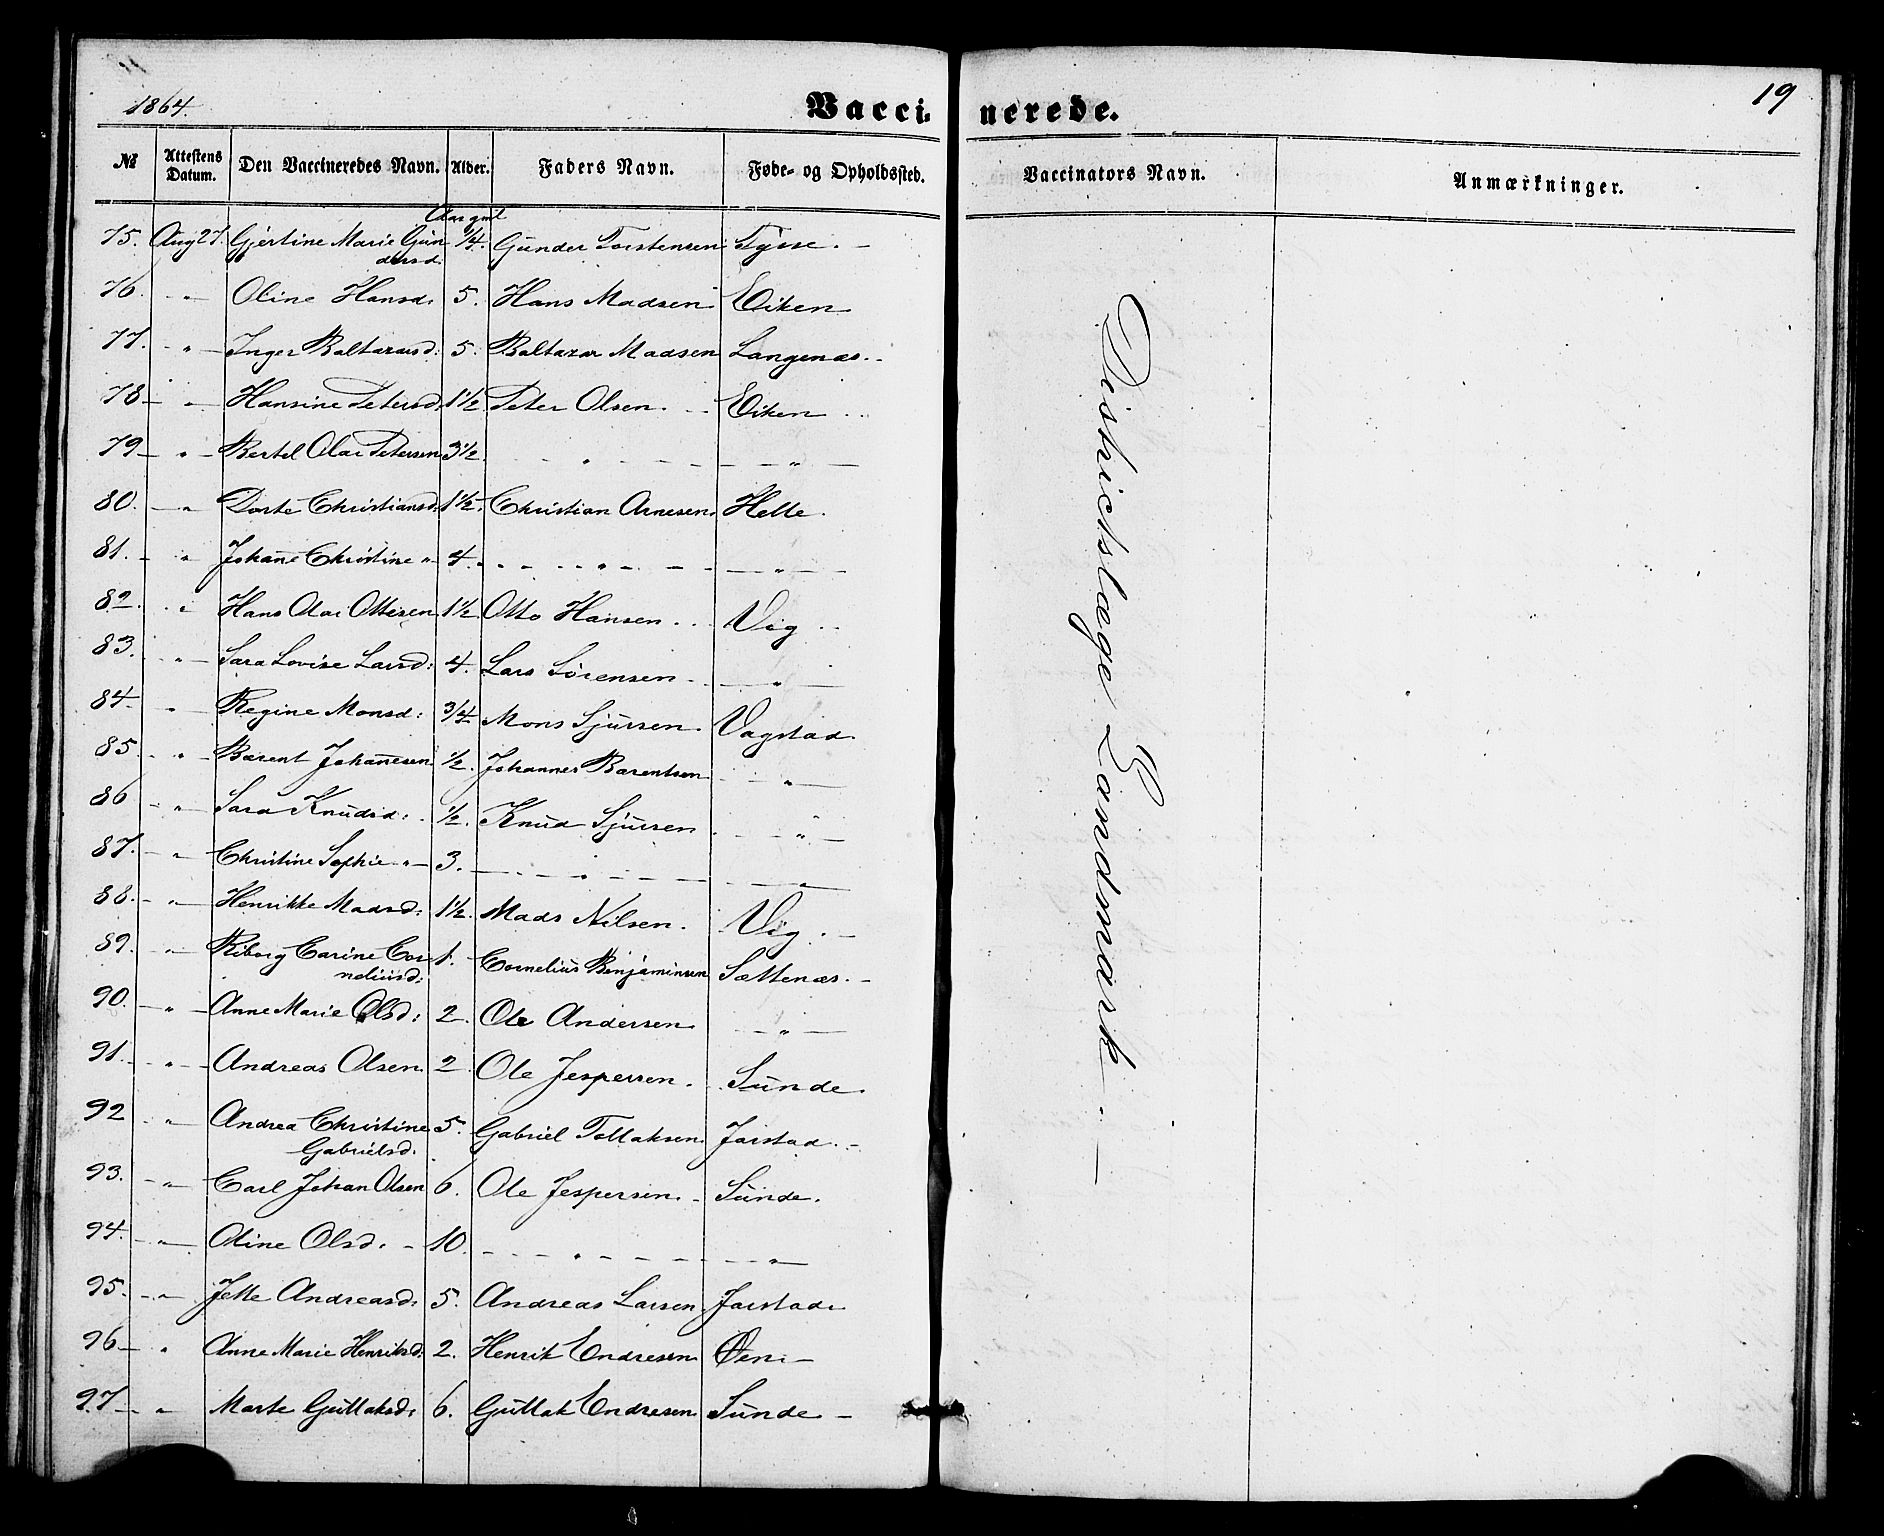 1864.
Vacci-
nerede.
19
№
Attestens Datum.
Den Vaccineredes Navn.
Alder.
Faders Navn.
Føde- og Opholdssted.
Vaccinators Navn.
Anmærkninger.
Aar gml
75. Aug 27. Gjertine Marie Gun 1/4. Gunder Torstensen Tysse. -
dersd.
76. - " - Oline Hansd. 5. Hans Madsen Eiken
77. - " - Inger Baltazarsd: 5. Baltazar Madsen Langenæs. -
78 - " - Hansine Petersd. 1 1/2 Peter Olsen. - Eiken
79 - " - Bertel Olai Petersen 3 1/2. - " - - " -
80. - " Dorte Christiansd: 1 1/2. Christian Arnesen. Helle.
81. - " Johane Christine " 4. - " - - " -
82. " Hans Olai Ottesen 1 1/2 Otto Hansen. . . Vig. .
83. - " - Sara Lovise Larsd: 4. Lars Sørensen - - " -
84 - " Regine Monsd: 3/4 Mons Sjursen. Vagstad.
85. - " - Barent Johanesen 1/2. Johannes Barentsen - " -
86 - " - Sara Knudsd: 1/2. Knud Sjursen. - " -
87. - " - Christine Sophie " - 3. - " - - " -
88. - " - Henrikke Madsd: 1 1/2. Mads Nilsen. Vig. -
89. - " - Riborg Carine Cor 1. Cornelius Benjaminsen Sættenæs. -
neliusd:
90. - " - Anne Marie Olsd: 2. Ole Andersen - " -
91. - " - Andreas Olsen 2 Ole Jespersen. Sunde.
92 - " - Andrea Christine 5. Gabriel Tollaksen Jarstad. -
Gabrielsd.
93. - " - Carl Johan Olsen 6. Ole Jespersen. - Sunde.
94. - " - Oline Olsd. - 10. - " - - " -
95. - " - Jette Andreasd: 5. Andreas Larsen Jarstad.
96 - " Anne Marie Henriksd: 2. Henrik Endresen Øen. -
97 - " - Marte Gullaksd: 6. Gullak Endresen Sunde -
Districtslæge Landmark - " -